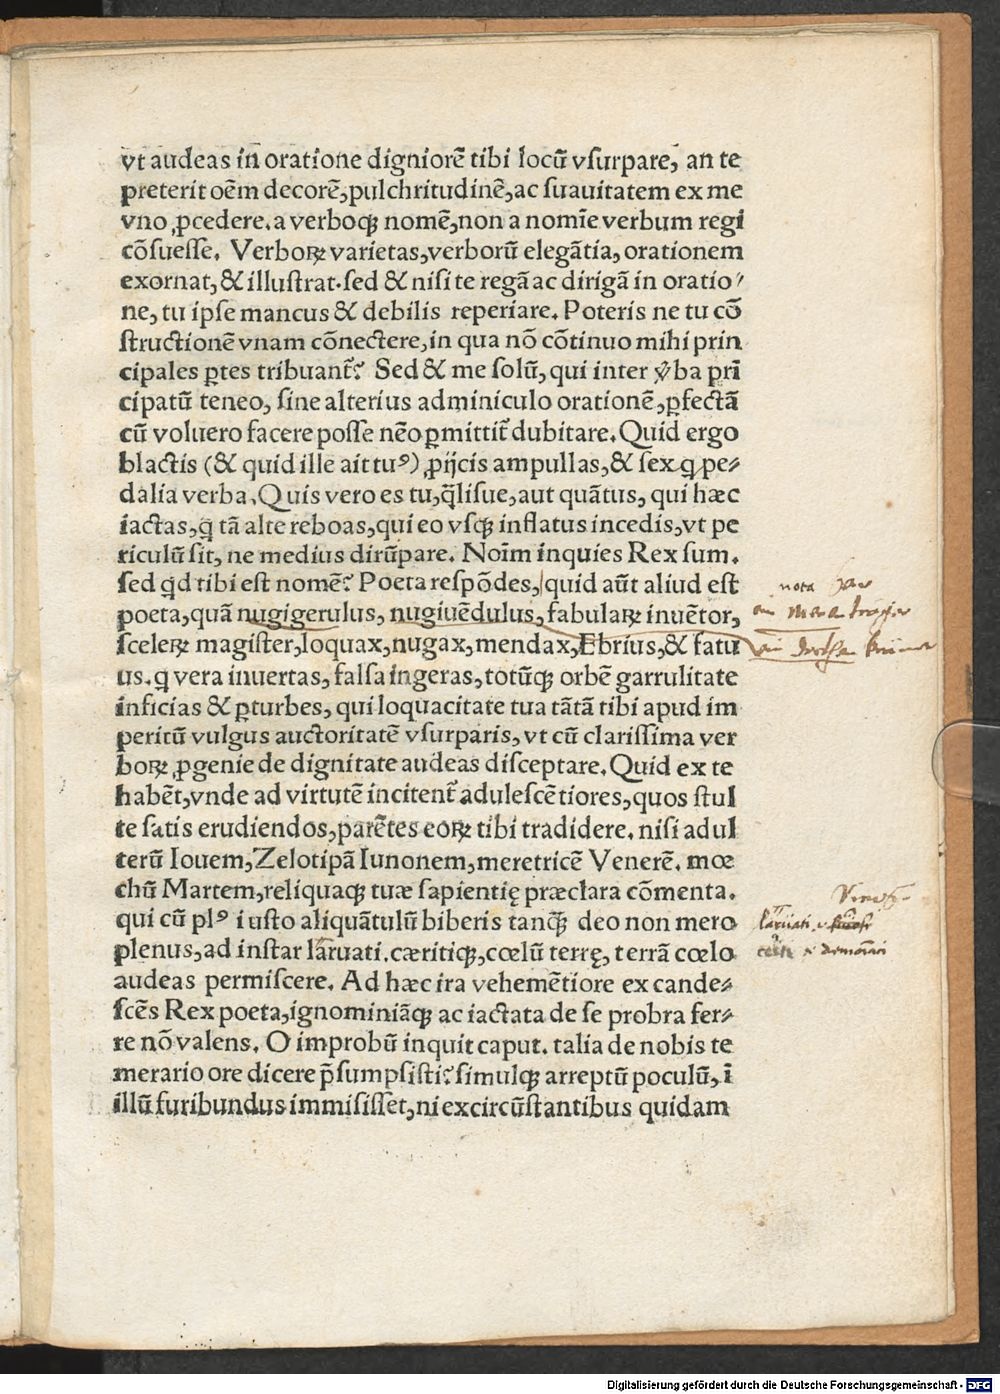 vt audeas in oratione digniorẽ tibi locũ vſurpare, an te
preterit oẽm decorẽ, pulchritudinẽ, ac ſuauitatem ex me
vno ꝓcedere. a verboqꝫ nomẽ, non a nomĩe verbum regi
cõſueſſe. Verboꝝ varietas, verborũ elegãtia, orationem
exornat, & illuſtrat. ſed & niſi te regã ac dirigã in oratio⸗
ne, tu ipſe mancus & debilis reperiare. Poteris ne tu cõ
ſtructionẽ vnam cõnectere, in qua nõ cõtinuo mihi prin
cipales ꝑtes tribuant̃? Sed & me ſolũ, qui inter v̾ba pri
cipatũ teneo, ſine alterius adminiculo orationẽ, ꝑfectã
cũ voluero facere poſſe nẽo ꝑmittit̃ dubitare. Quid ergo
blactis (& quid ille ait tuꝰ) ꝓijcis ampullas, & ſex q̃ pe⸗
dalia verba. Quis vero es tu, q̃liſue, aut quãtus, qui hæc
iactas, q̃ tã alte reboas, qui eo vſqꝫ inflatus incedis, vt pe
riculũ ſit, ne medius dirũpare. Noĩm inquies Rex ſum.
ſed qd tibi eſt nomẽ? Poeta reſpõdes, quid aũt aliud eſt
poeta, quã nugigerulus, nugiuẽdulus, fabulaꝝ inuẽtor,
ſceleꝝ magiſter, loquax, nugax, mendax, Ebrius, & fatu
us. q̃ vera inuertas, falſa ingeras, totũqꝫ orbẽ garrulitate
inficias & ꝑturbes, qui loquacitate tua tãtã tibi apud im
peritũ vulgus auctoritatẽ vſurparis, vt cũ clariſſima ver
boꝝ ꝓgenie de dignitate audeas diſceptare. Quid ex te
habẽt, vnde ad virtutẽ incitent̃ adulefcẽtiores, quos ſtul
te ſatis erudiendos, parẽtes eoꝝ tibi tradidere. niſi adul
terũ Iouem, Zelotipã Iunonem, meretricẽ Venerẽ. mœ
chũ Martem, reliquaqꝫ tuæ ſapientię præclara cõmenta.
qui cũ plꝰ iuſto aliquãtulũ biberis tanqꝫ̃ deo non mero
plenus, ad inſtar laruati. cæritiqꝫ, cœlũ terrę, terrã cœlo
audeas permiſcere. Ad hæc ira vehemẽtiore ex cande⸗
ſcẽs Rex poeta, ignominiãqꝫ ac iactata de ſe probra fer⸗
re nõ valens. O improbũ inquit caput. talia de nobis te
merario ore dicere p̃ſumpſiſti? ſimulqꝫ arreptũ poculũ, ĩ
illũ furibundus immiſiſſet, ni ex circũſtantibus quidam
nota
laruati
Digitalisierung gefördert durch die Deutsche Forschungsgemeinschaft - DFG